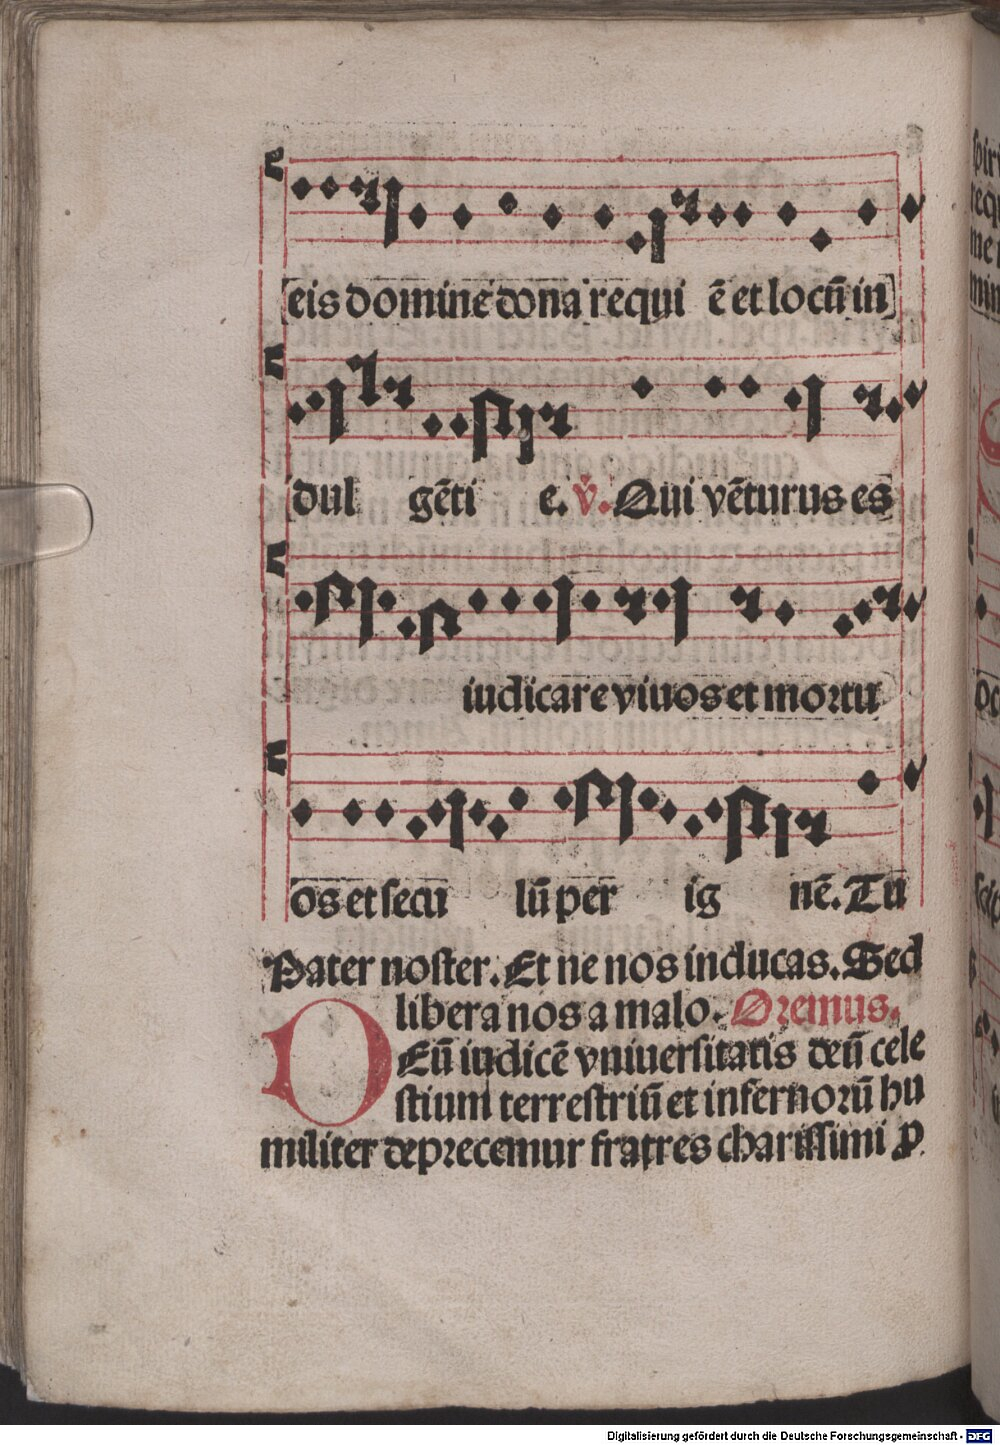 eis domine dona requi ē et locū in
dul gēti e. v̇. Qui vēturus es
iudicare viuos et mortu
os et secu lū per ig nē. Tu
Pater noster. Et ne nos inducas. Sed
libera nos a malo. Oremus.
DEū iudicē vniuersitatis deū cele
stium terrestriū et infernorū hu
militer deprecemur fratres charissimi ꝓ
Digitalisierung gefördert durch die Deutsche Forschungsgemeinschaft - DFG